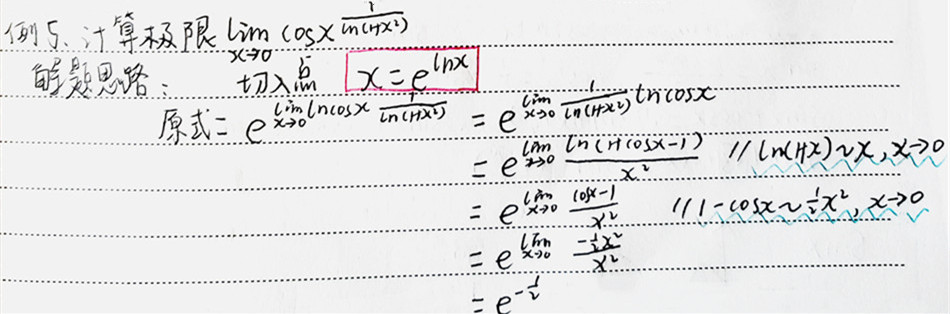 例5、计算极限 lim x→0 cosx^(1/ln(1+x²))
解题思路: 切入点 x=e^(lnx)
原式= e^(lim x→0 lncosx^(1/ln(1+x²))) = e^(lim x→0 1/ln(1+x²) lncosx)
= e^(lim x→0 ln(1+cosx-1)/x²) //ln(1+x)~x, x→0
= e^(lim x→0 (cosx-1)/x²) //1-cosx~½x², x→0
= e^(lim x→0 (-½x²)/x²)
= e^(-½)